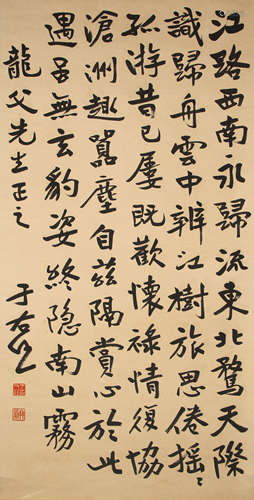 江路西南永歸流東北騖天際
識歸舟雲中辨江樹旅思倦摇〻
孤游昔已屢既歡懷祿情復協
滄洲趣囂塵自兹隔賞心於此
遇虽無玄豹姿終隐南山霧
龍父先生正之
于右任